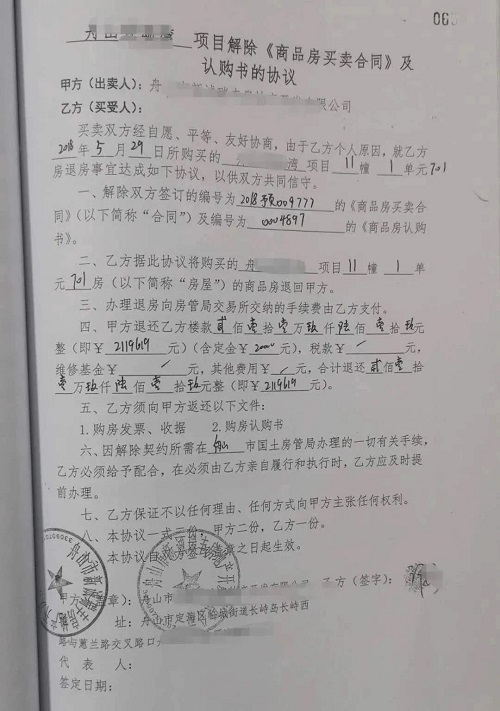 06
舟山 项目解除《商品房买卖合同》及
认购书的协议
甲方（出卖人）：舟 公司
乙方（买受人）：
买卖双方经自愿、平等、友好协商，由于乙方个人原因，就乙方
2018年5月29日所购买的 湾项目11幢1单元701
房退房事宜达成如下协议，以供双方共同信守。
一、解除双方签订的编号为2018预009777的《商品房买卖合
同》（以下简称“合同”）及编号为0004897的《商品房认购
书》。
二、乙方据此协议将购买的舟 项目11幢1单
元701房（以下简称“房屋”）的商品房退回甲方。
三、办理退房向房管局交易所交纳的手续费由乙方支付。
四、甲方退还乙方楼款贰佰壹拾壹万玖仟陆佰壹拾玖元
整（即￥2119619元）（含定金￥ 元），税款￥/元，
维修基金￥/元，其他费用￥/元，合计退还贰佰壹拾
壹万玖仟陆佰壹拾玖元整（即￥2119619元）。
五、乙方须向甲方返还以下文件：
1.购房发票、收据 2.购房认购书
六、因解除契约所需在舟山市国土房管局办理的一切有关手续，
乙方必须给予配合，在必须由乙方亲自履行和执行时，乙方应及时提
前办理。
七、乙方保证不以任何理由、任何方式向甲方主张任何权利。
八、本协议一式三份，甲方二份，乙方一份。
本协议自双方签 章之日起生效。
甲方 章）：舟山市 公司 乙方（签字）：
址：舟山市定海区临城街道长峙岛长峙西
路与蕙兰路交叉路口
代 表 人：
签定日期：